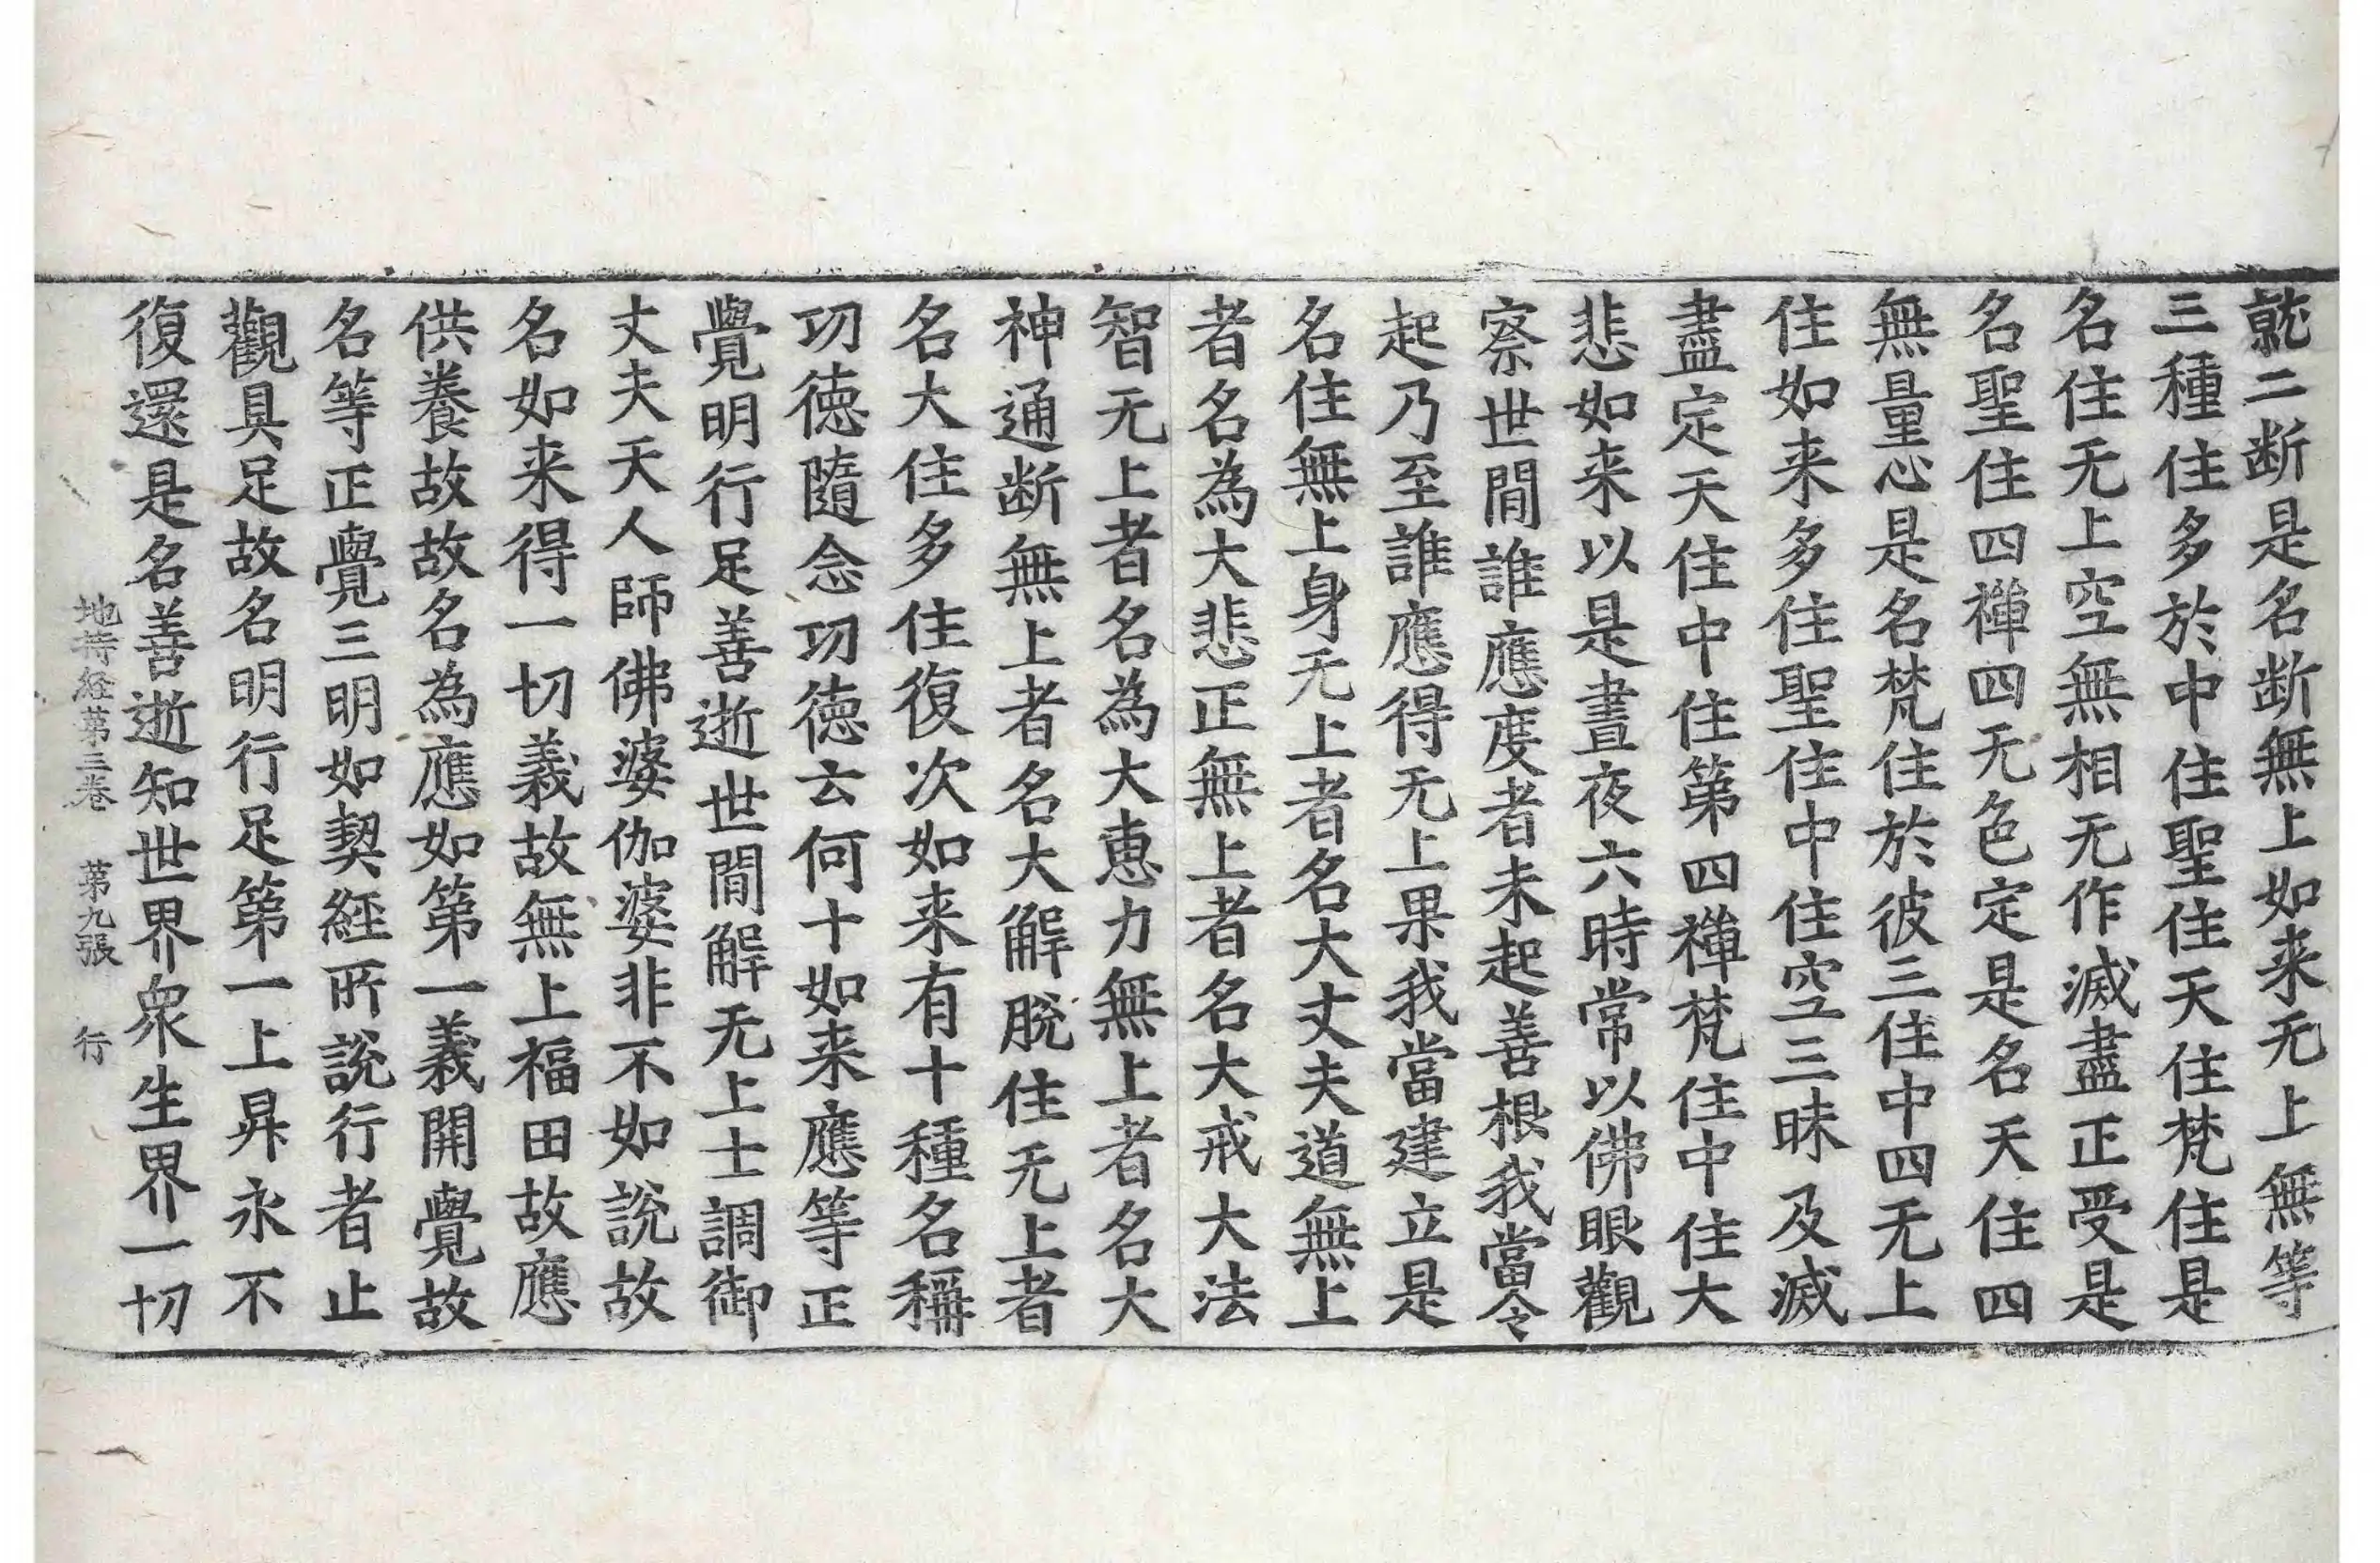 就二断是名断無上如来无上無等
三種住多於中住聖住天住梵住是
名住无上空無相无作滅盡正受是
名聖住四禅四无色定是名天住四
無量心是名梵住於彼三住中四无上
住如来多住聖住中住空三昧及滅
盡定天住中住第四禅梵住中住大
悲如来以是晝夜六時常以佛眼觀
察世間誰應度者未起善根我當令
起乃至誰應得无上果我當建立是
名住無上身无上者名大丈夫道無上
者名為大悲正無上者名大戒大法
智无上者名為大恵力無上者名大
神通断無上者名大解脱住无上者
名大住多住復次如来有十種名稱
功徳隨念功徳云何十如来應等正
覺明行足善逝世間解无上士調御
丈夫天人師佛婆伽婆非不如說故
名如来得一切義故無上福田故應
供養故故名為應如第一義開覺故
名等正覺三明如契經所說行者止
觀具足故名明行足第一上昇永不
復還是名善逝知世界衆生界一切
地持經第三卷 第九張 行